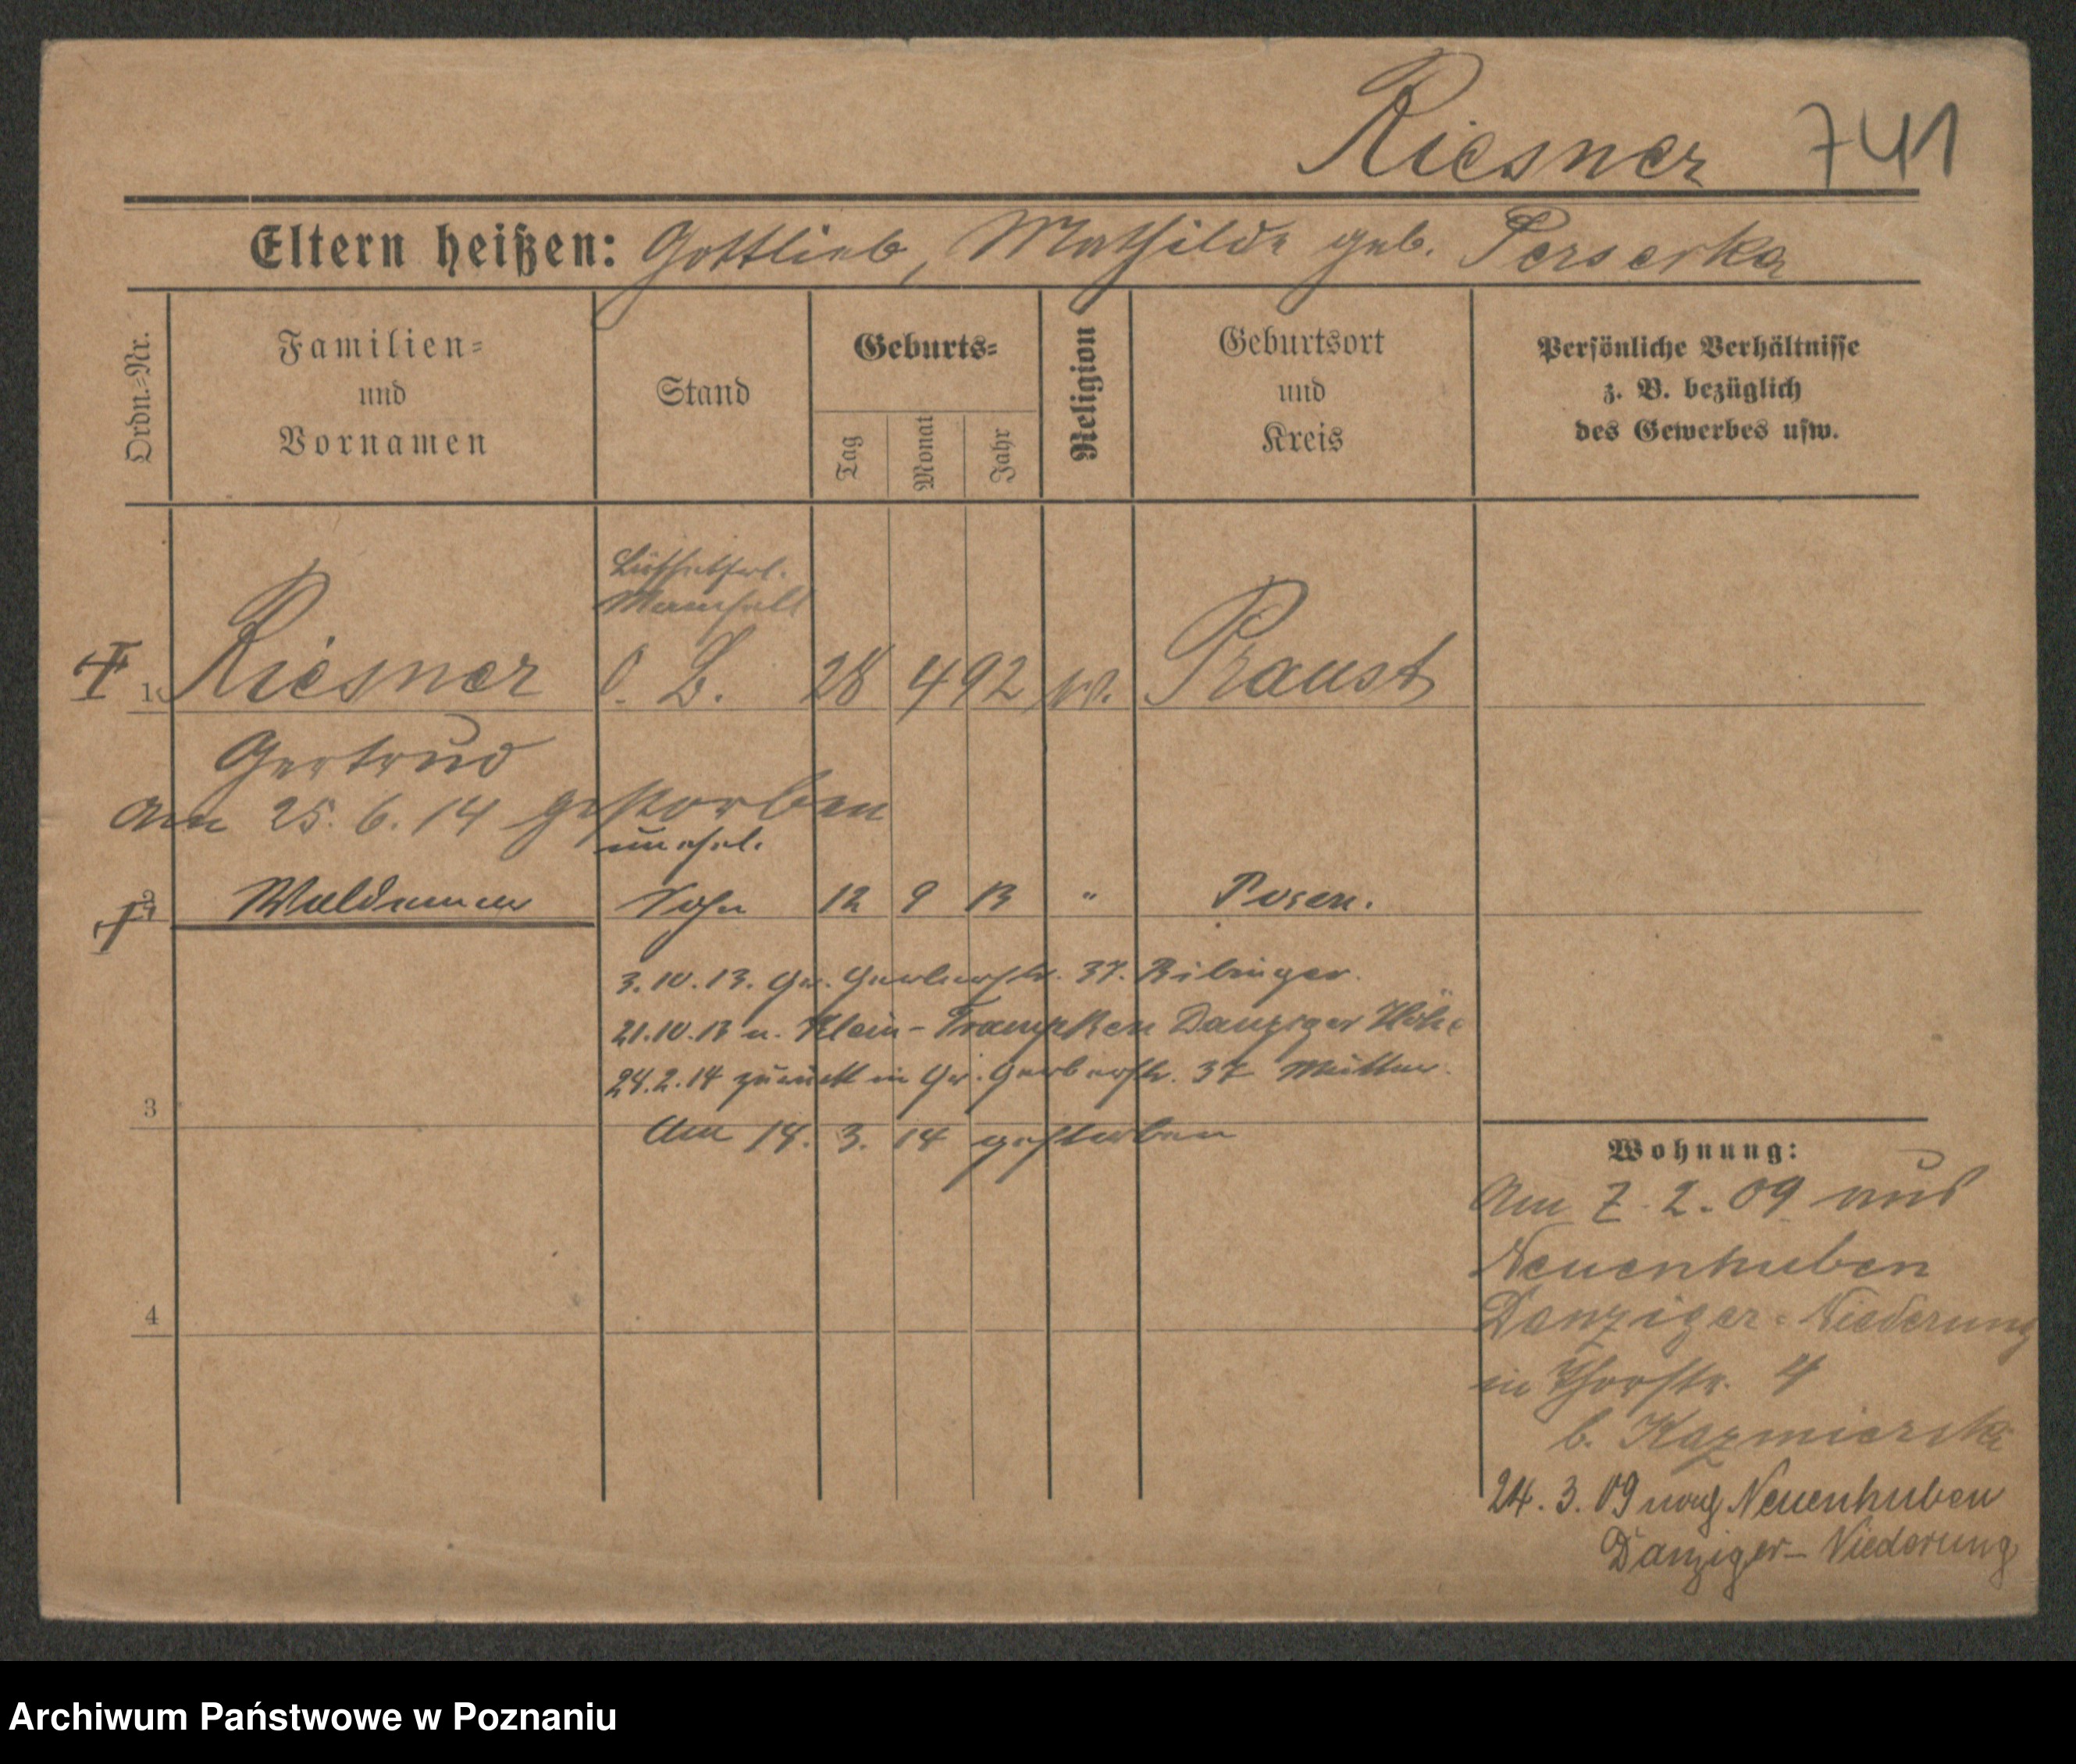 Riesner 741
Eltern heißen: Gottlieb, Mathilde geb. Perserka
Ordn.-Nr.
Familien-
und
Vornamen
Stand
Geburts-
Tag
Monat
Jahr
Religion
Geburtsort
und
Kreis
Persönliche Verhältnisse
z. B. bezüglich
des Gewerbes usw.
Mamsell
1. Riesner o. B. 28 4 92 Praust
Gertrud
Am 25. 6. 14 gestorben
unehel.
2 Waldemar Sohn 12 9 13 " Posen.
3. 10. 13. Gr. Gerberstr. 37. Bibinger.
21.10.13 n. Klein-Trampken Danziger Höhe
24.2.14 zurück in Gr. Gerberstr. 37 Mutter.
3
Am 14. 3. 14 gestorben
4
Wohnung:
Am 7. 2. 09 aus
Neuenhuben
Danziger-Niederung
in Thorstr. 4
b. Kazmierska
24. 3. 09 nach Neuenhuben
Danziger-Niederung
Archiwum Państwowe w Poznaniu